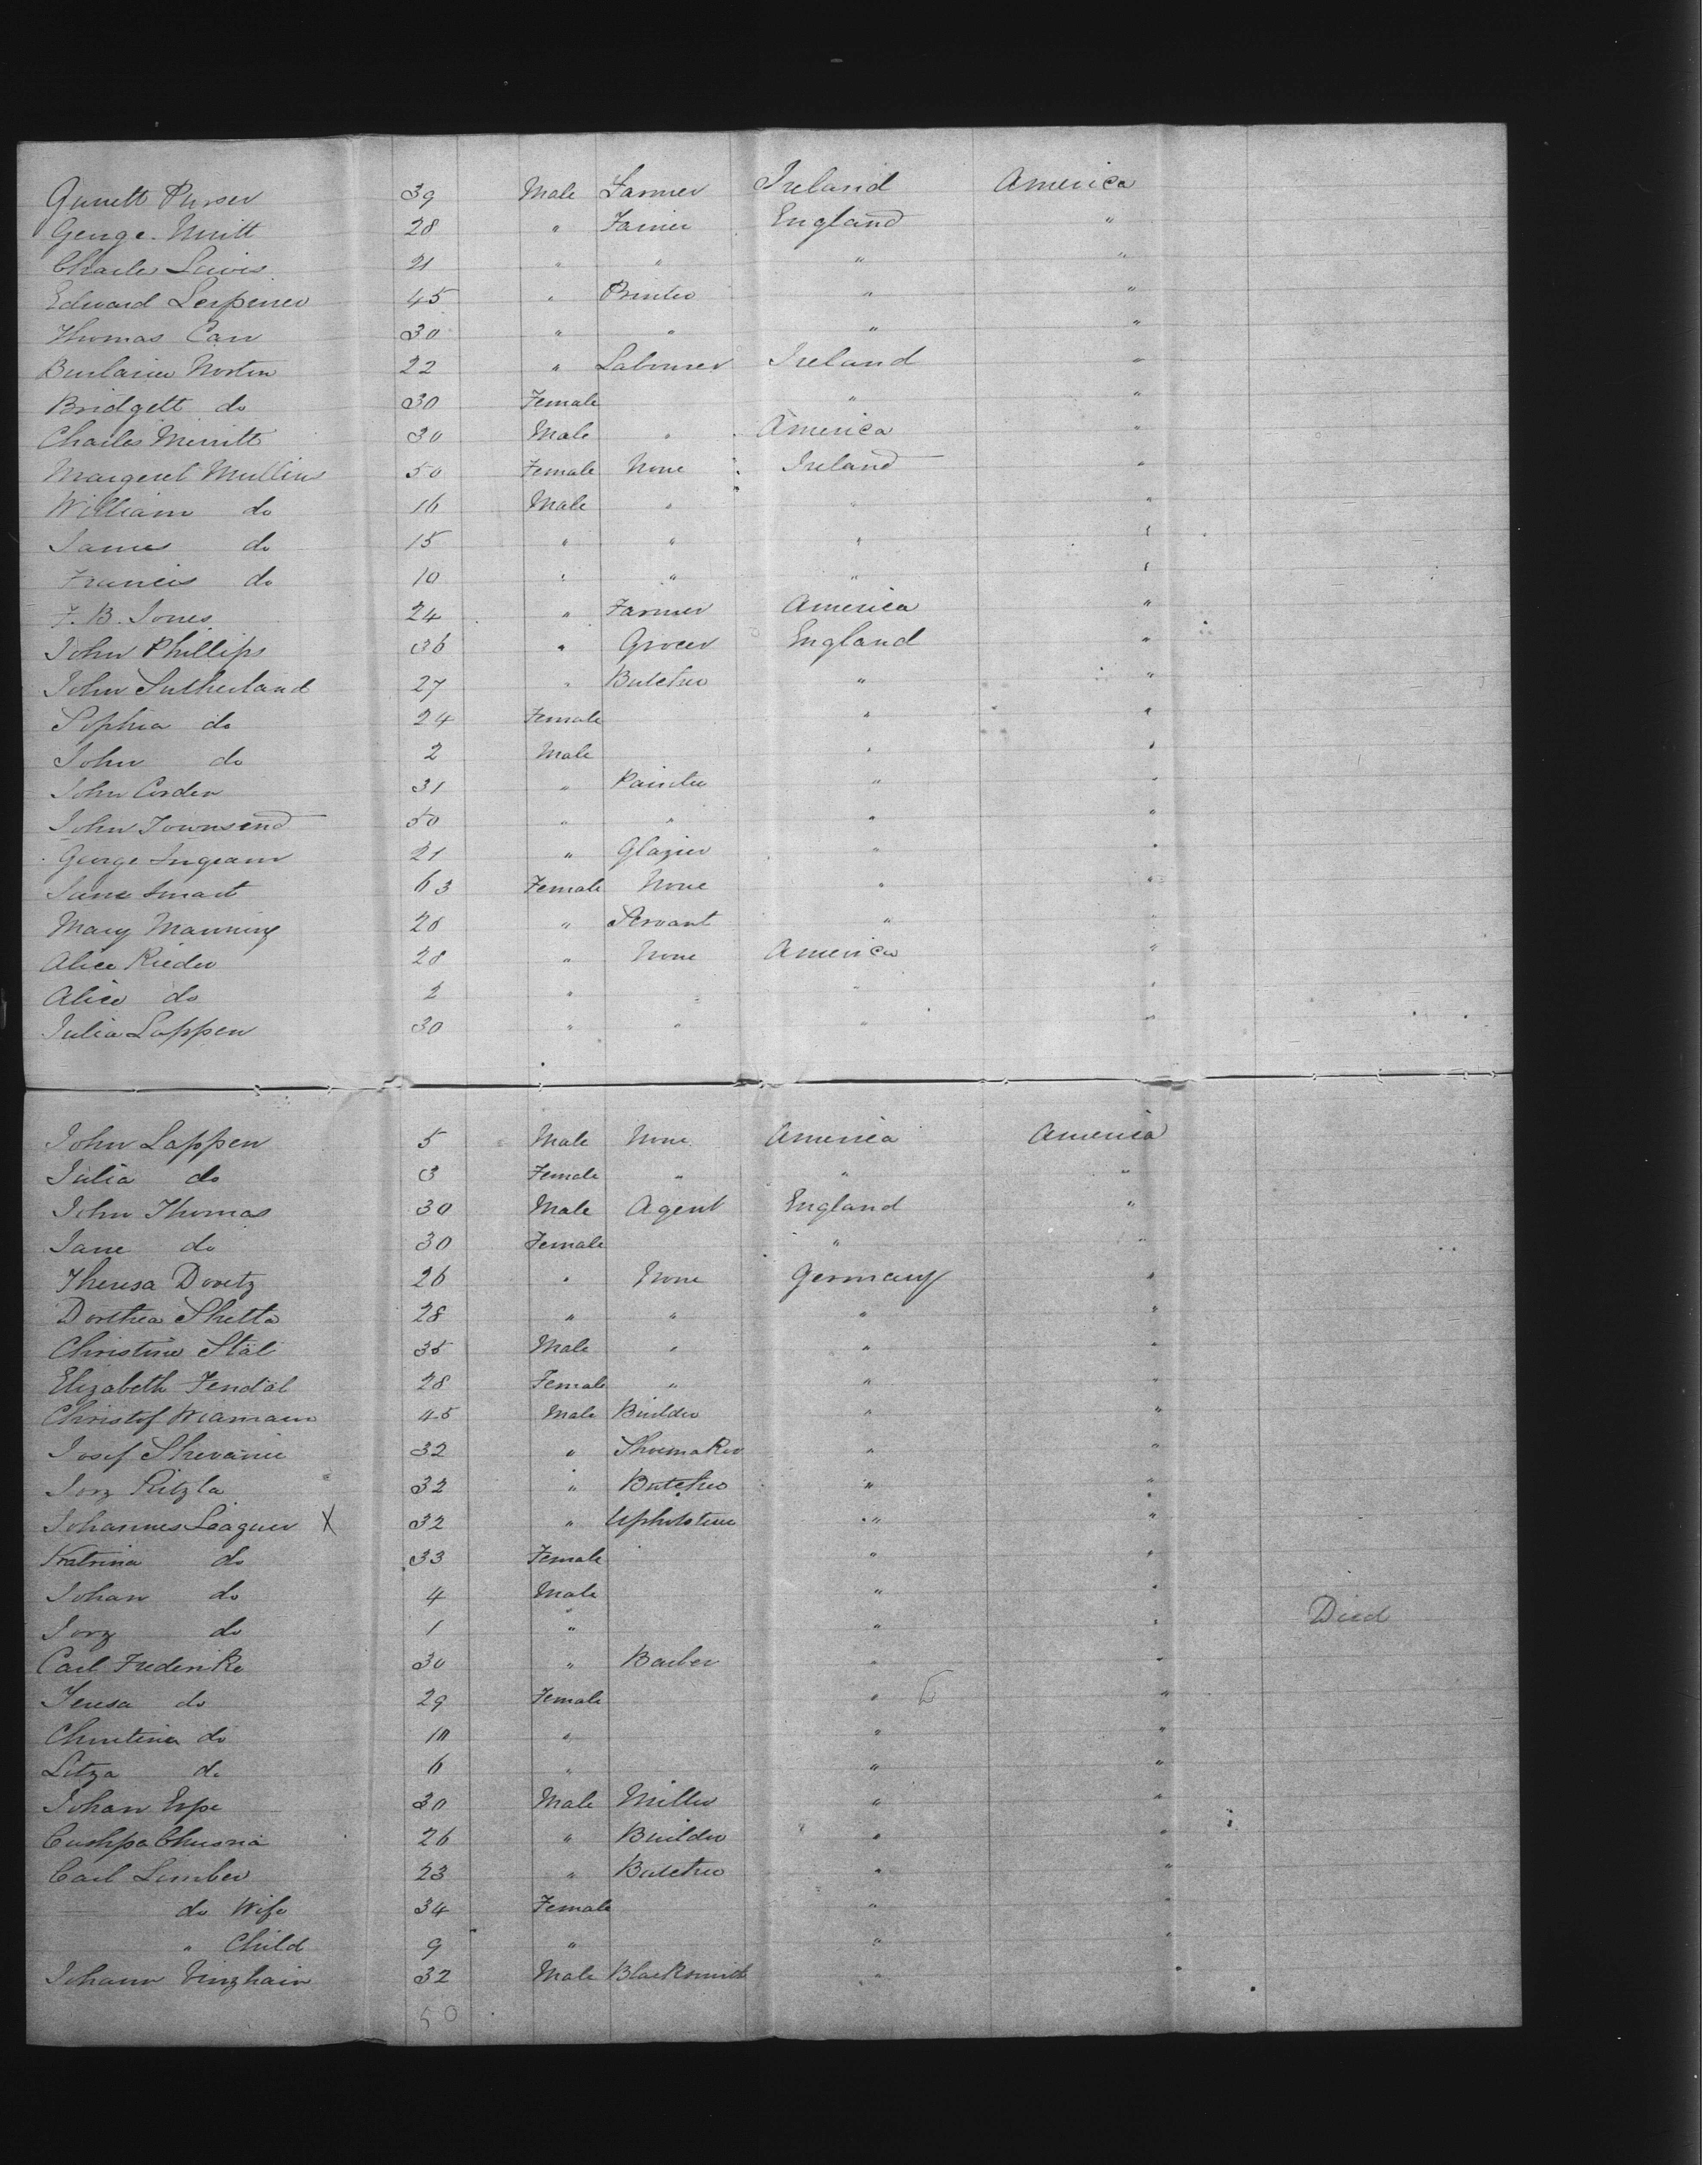 Garrett Purser 39 Male Farmer Ireland America
George Writt 28 " Farrier England "
Charles Lewis 21 " " " "
Edward 45 " Printer " "
Thomas Carr 30 " " " "
Norton 22 " Labourer Ireland "
Bridgett do 30 Female " "
Charles Merritt 30 Male " America "
Margeret Mullins 50 Female None Ireland "
William do 16 Male " " "
James do 15 " " " "
Francis do 10 " " " "
F. B. Jones 24 " Farmer America "
John Phillips 36 " Grocer England "
John Sutherland 27 " Butcher " "
Sophia do 24 Female " "
John do 2 Male " "
John Corden 31 " Painter " "
John Townsend 50 " " " "
George Ingram 21 " Glazier " "
Jane Smart 63 Female None " "
Mary Manning 28 " Servant " "
Alice Rieder 28 " None America "
Alice do 2 " " " "
Julia Lappen 30 " " " "
John Lappen 5 Male None America America
Julia do 3 Female " " "
John Thomas 30 Male Agent England "
Jane do 30 Female " "
Theresa Dovitz 26 " None Germany "
Dorthea Shetta 28 " " " "
Christine Stäl 35 Male " " "
Elizabeth Fendal 28 Female " " "
Christof 45 Male Builder " "
Josef 32 " Shoemaker " "
Jorz Ritzla 32 " Butcher " "
Johannes Leaguer X 32 " Upholsterer " "
Katrina do 33 Female " "
Johan do 4 Male " "
Jorz do 1 " " " Died
Carl Frederike 30 " Barber " "
Teresa do 29 Female " "
Christina do 10 " " "
Litza do 6 " " "
Johan Erpe 30 Male Miller " "
26 " Builder " "
Carl Limber 23 " Butcher " "
do Wife 34 Female " "
" Child 9 " " "
Johann Vinzhain 32 Male Blacksmith " "
50